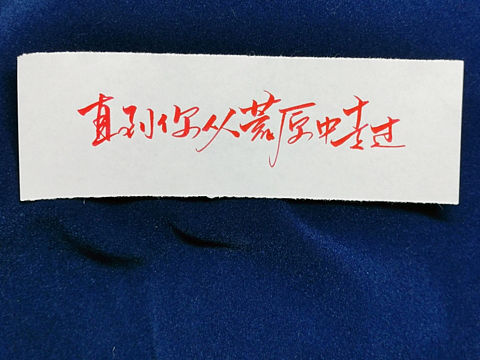 直到你从荒原中走过